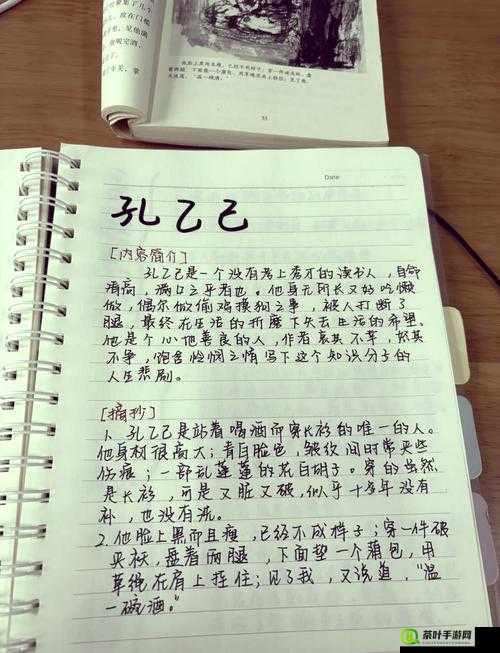 孔乙己
Date
[内容简介]
孔乙己是一个没有考上秀才的读书人，自命
清高，满口之乎者也。他身无所长又好吃懒
做，偶尔做偷鸡摸狗之事，被人打断了
腿，最终在生活的折磨下失去生活的希望。
他是个心地善良的人，作者哀其不幸，怒其
不争，饱含怜悯之情写下这个知识分子的
人生悲剧。
[摘抄]
1、孔乙己是站着喝酒而穿长衫的唯一的人。
他身材很高大；青白脸色，皱纹间时常夹些
伤痕；一部乱蓬蓬的花白胡子。穿的虽然
是长衫，可是又脏又破，似乎十多年没有
补，也没有洗。
2、他脸上黑而且瘦，已经不成样子；穿一件破
夹袄，盘着两腿，下面垫一个蒲包，用
草绳在肩上挂住；见了我，又说道，“温
一碗酒。”
茶叶手游网